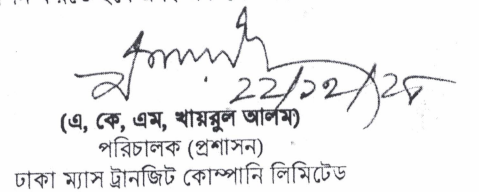 22/12/25
(এ, কে, এম, খায়রুল আলম)
পরিচালক (প্রশাসন)
ঢাকা ম্যাস ট্রানজিট কোম্পানি লিমিটেড